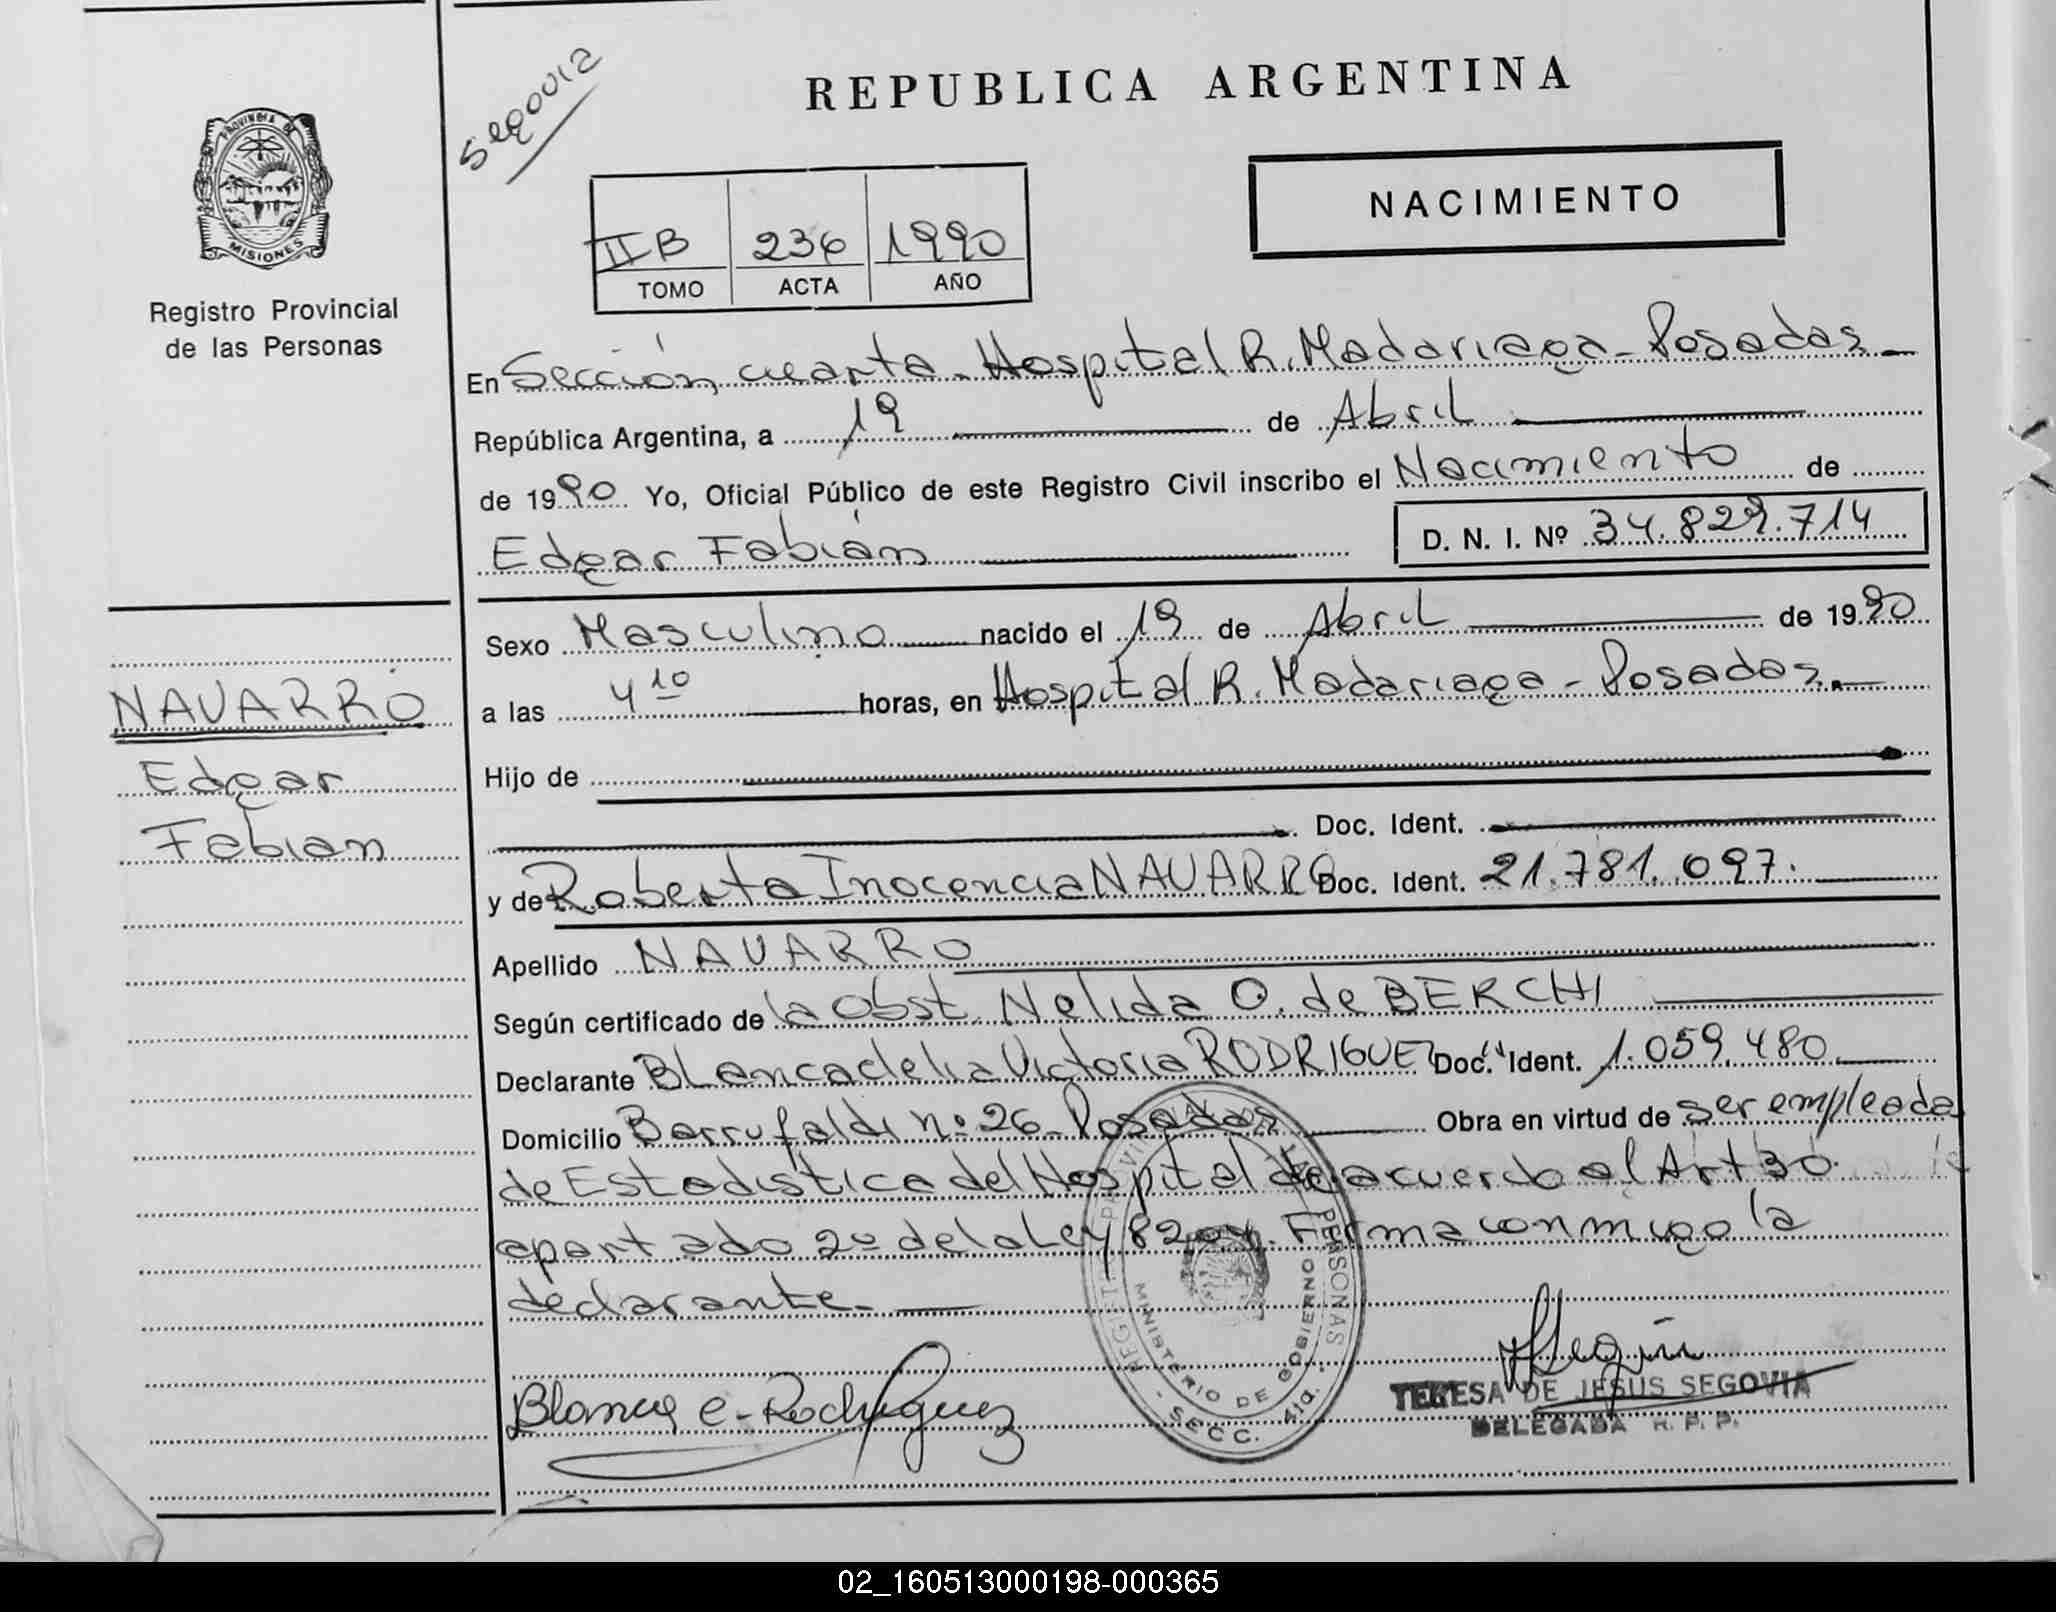 Segovia
REPUBLICA ARGENTINA
PROVINCIA DE
MISIONES
Registro Provincial
de las Personas
NACIMIENTO
II B 236 1990
TOMO ACTA AÑO
En Sección cuarta - Hospital R. Madariaga - Posadas
República Argentina, a 19 de Abril
de 1990 Yo, Oficial Público de este Registro Civil inscribo el Nacimiento de
Edgar Fabián D. N. I. Nº 34.829.714
Sexo Masculino nacido el 19 de Abril de 1990
a las 4 10 horas, en Hospital R. Madariaga - Posadas.
NAVARRO
Edgar
Fabian
Hijo de
Doc. Ident.
y de Roberta Inocencia NAVARRO Doc. Ident. 21.781.097.
Apellido NAVARRO
Según certificado de la Obst. Nelida O. de BERCHI
Declarante Blancadelia Victoria RODRIGUEZ Doc. Ident. 1.059.480
Domicilio Barrufaldi nº 26 - Posadas Obra en virtud de ser empleada
de Estadística del Hospital de acuerdo al Art 30
apartado 2º de la Ley 8204. Firma conmigo la
declarante.
REGISTRO PROVINCIAL DE LAS PERSONAS
MINISTERIO DE GOBIERNO
- SECC. 4ta. -
TERESA DE JESUS SEGOVIA
DELEGADA R. P. P.
02_160513000198-000365